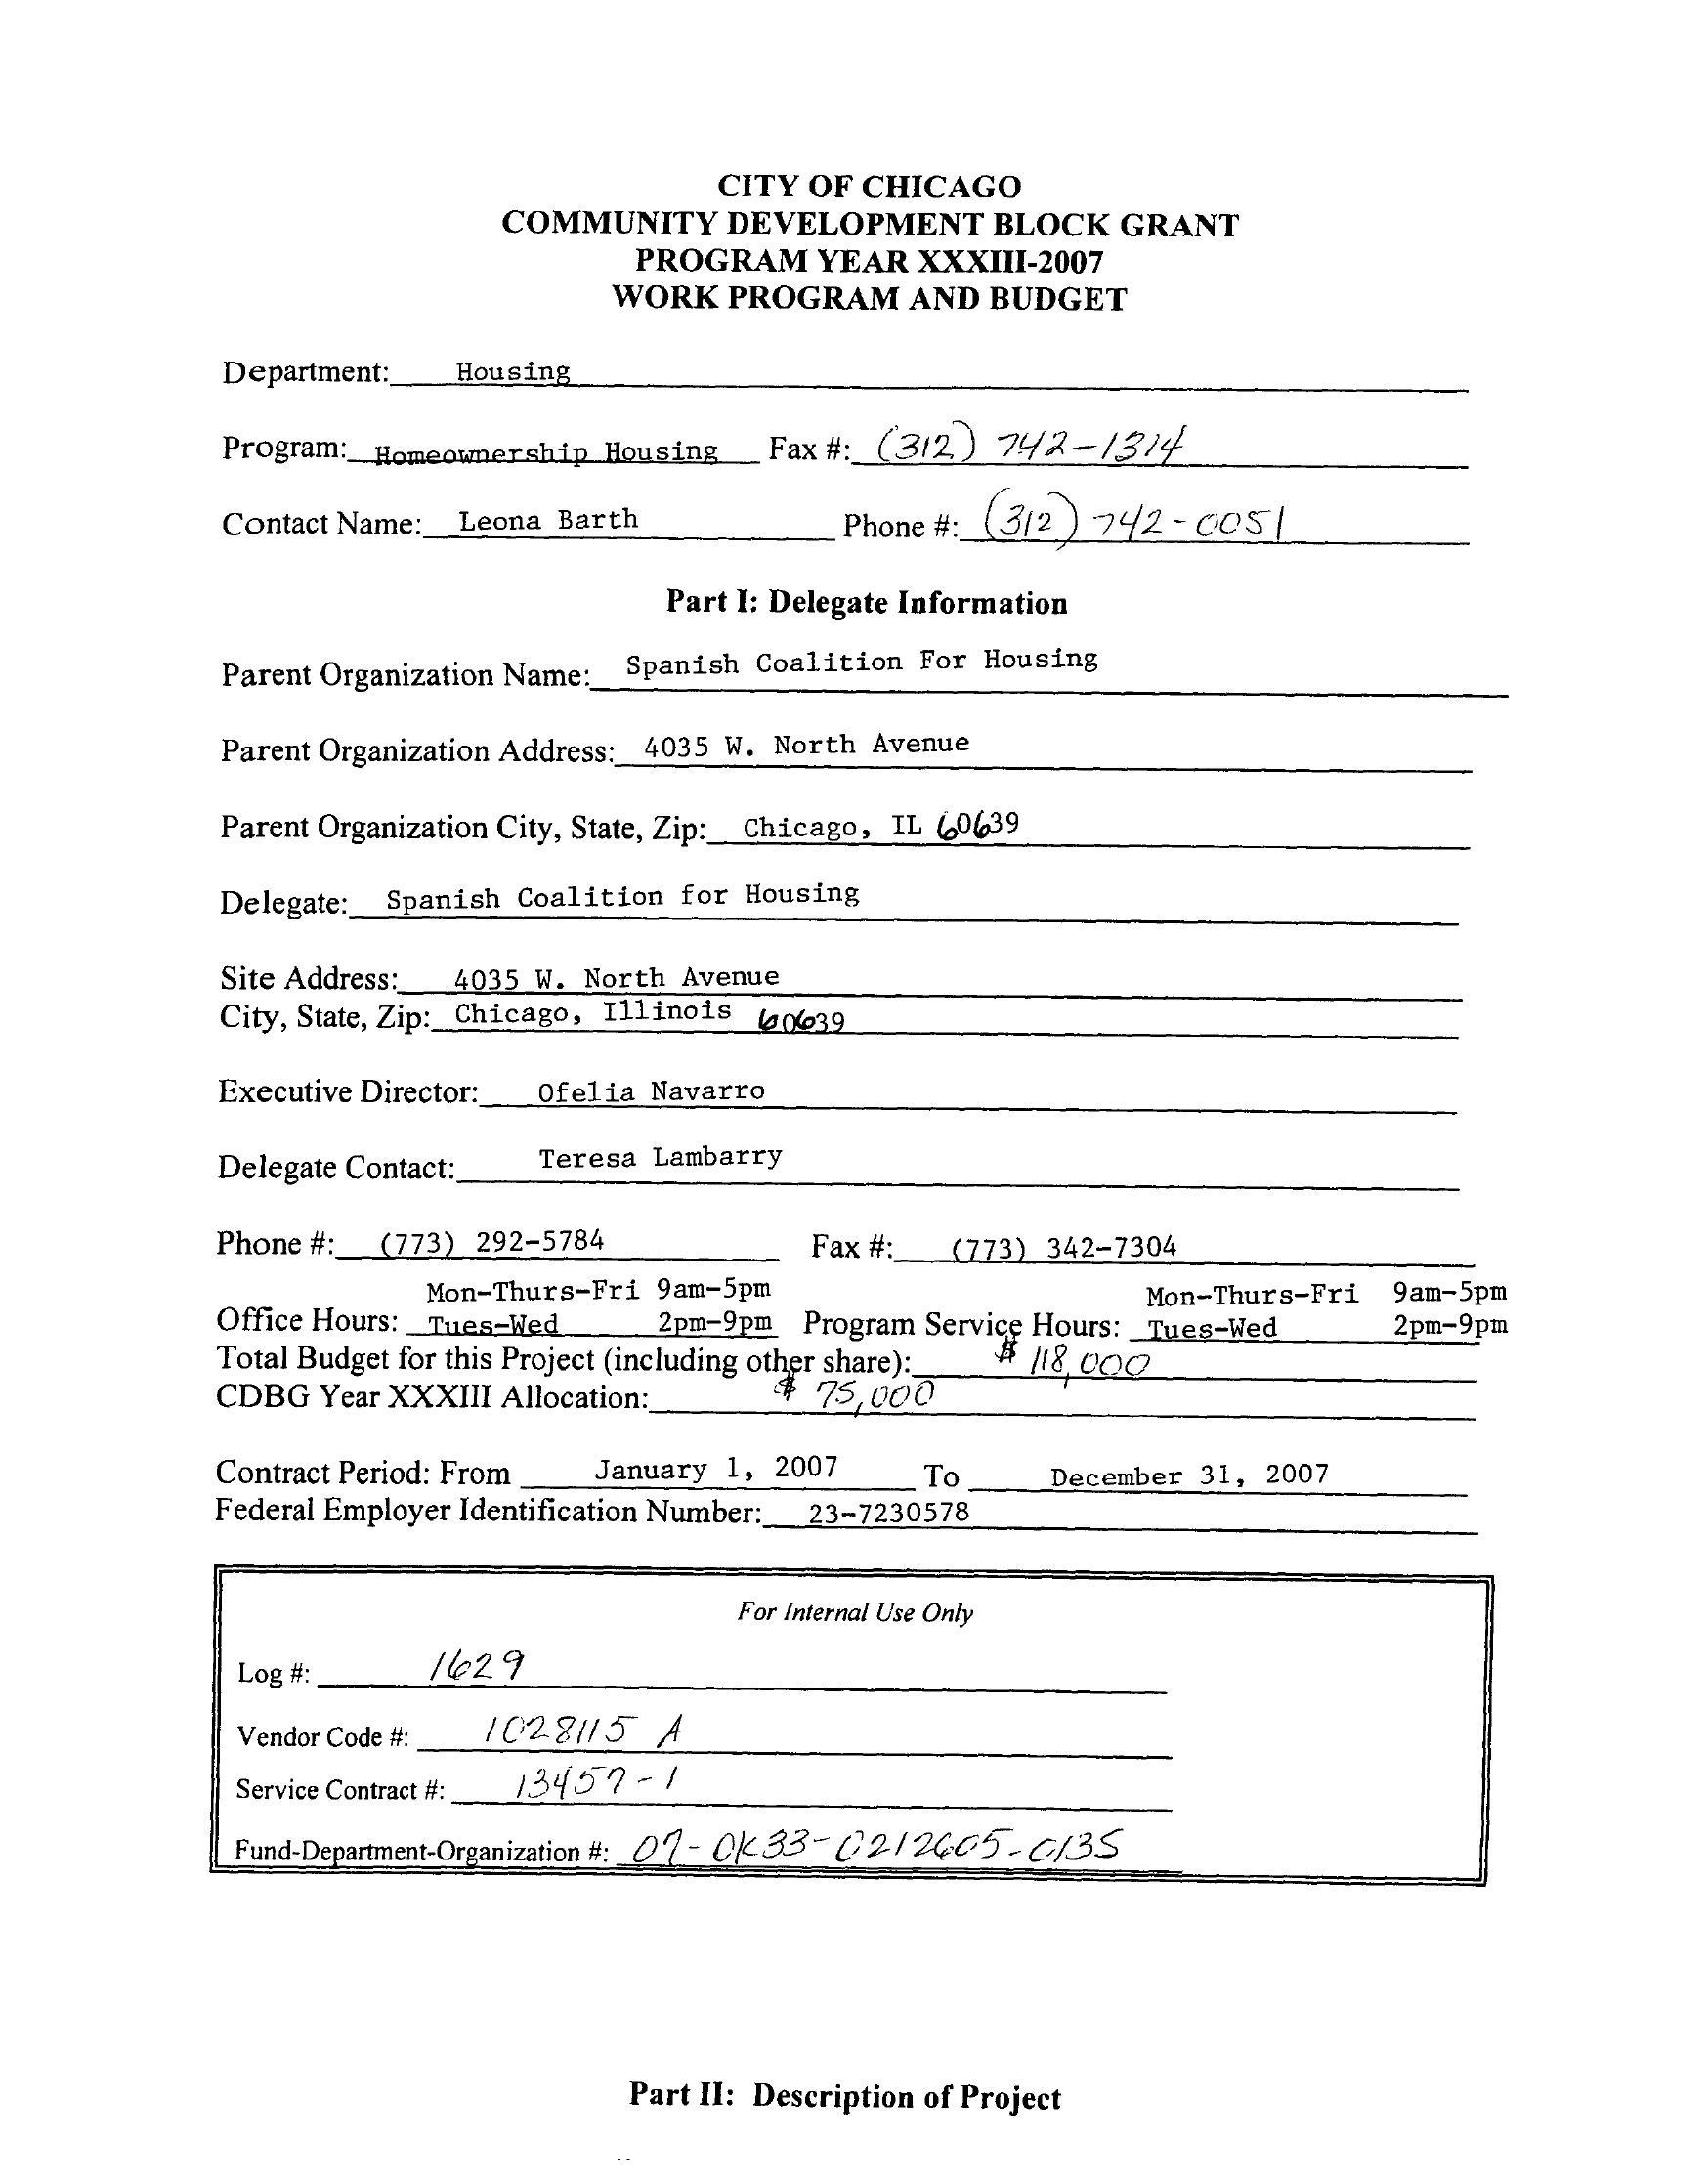 CITY OF CHICAGO
COMMUNITY DEVELOPMENT BLOCK GRANT
PROGRAM YEAR XXXIII-2007
WORK PROGRAM AND BUDGET
Department: Housing
Program: Homeownership Housing Fax #: (312) 742-1314
Contact Name: Leona Barth Phone #: (312) 742-0051
Part I: Delegate Information
Parent Organization Name: Spanish Coalition For Housing
Parent Organization Address: 4035 W. North Avenue
Parent Organization City, State, Zip: Chicago, IL 60639
Delegate: Spanish Coalition for Housing
Site Address: 4035 W. North Avenue
City, State, Zip: Chicago, Illinois 60639
Executive Director: Ofelia Navarro
Delegate Contact: Teresa Lambarry
Phone #: (773) 292-5784 Fax #: (773) 342-7304
Mon-Thurs-Fri 9am-5pm Mon-Thurs-Fri 9am-5pm
Office Hours: Tues-Wed 2pm-9pm Program Service Hours: Tues-Wed 2pm-9pm
Total Budget for this Project (including other share): $ 118,000
CDBG Year XXXIII Allocation: $ 75,000
Contract Period: From January 1, 2007 To December 31, 2007
Federal Employer Identification Number: 23-7230578
For Internal Use Only
Log #: 1629
Vendor Code #: 1028115 A
Service Contract #: 13457-1
Fund-Department-Organization #: 07-0K33-0212605-0135
Part II: Description of Project